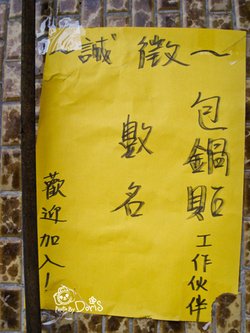 ～誠徵～
包鍋貼
工作伙伴
數名
歡迎加入！
Photo By Doris